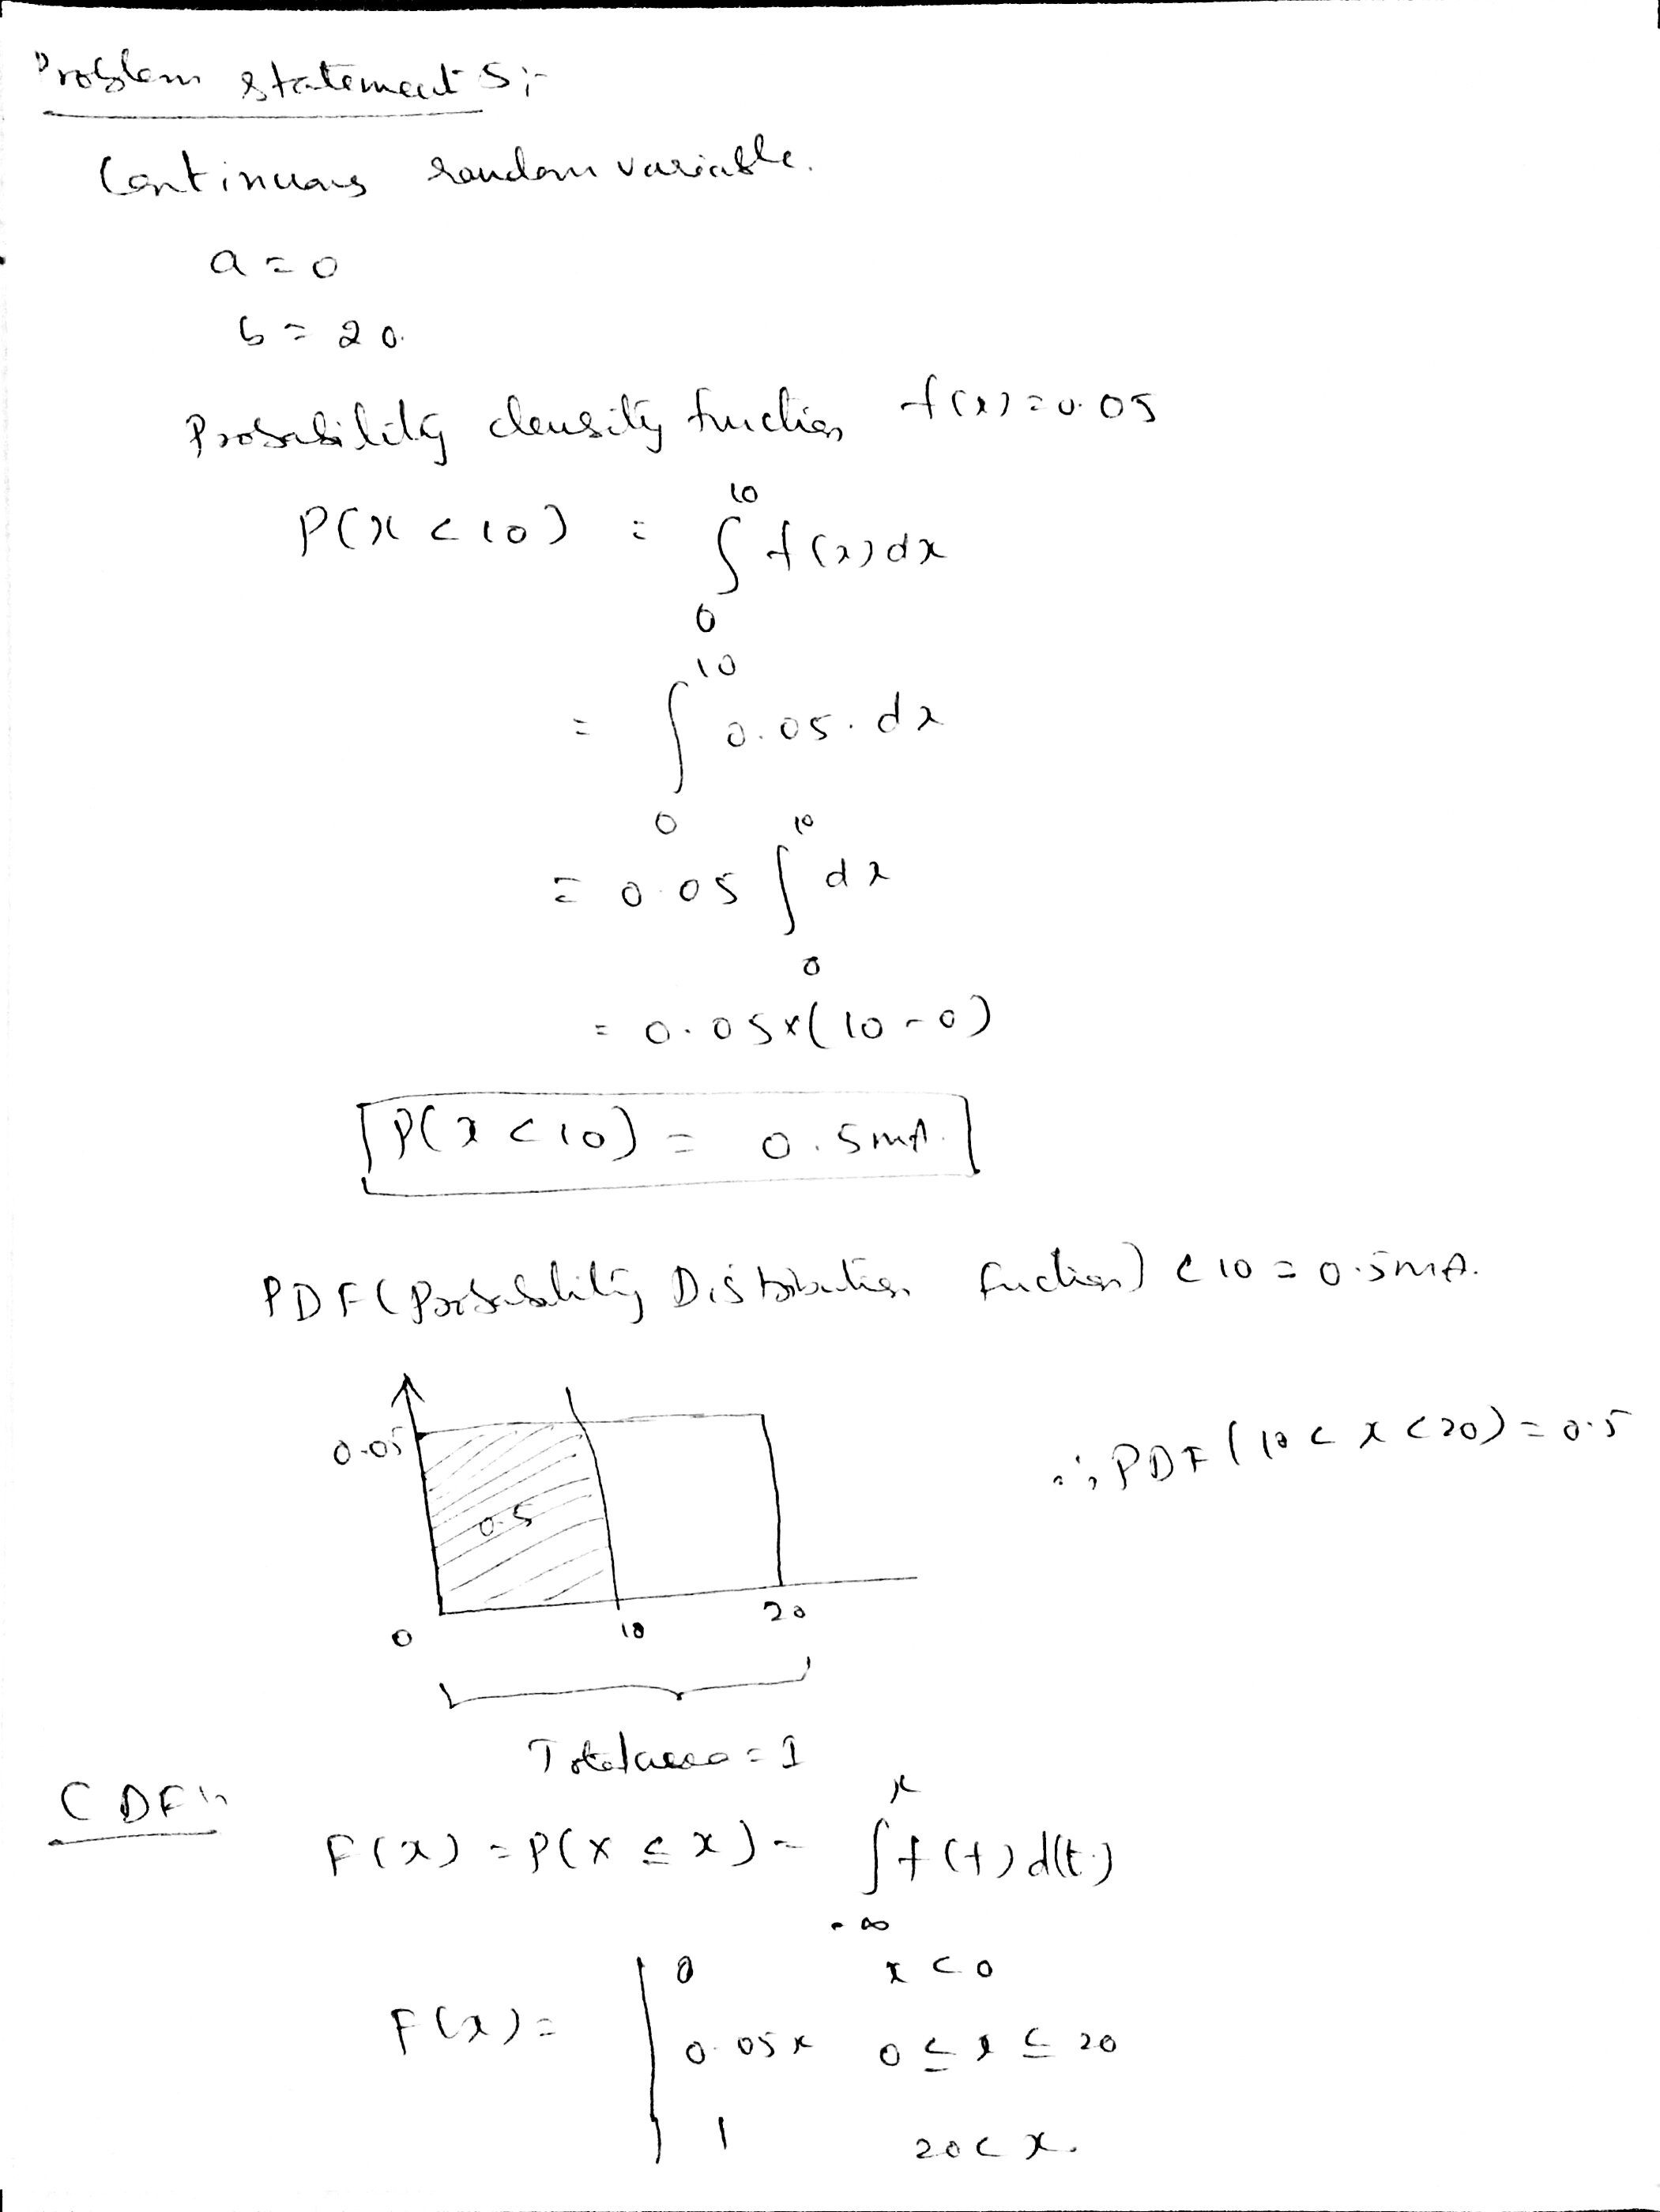 Problem statement 5:-
Continuous random variable.
a = 0
b = 20.
Probability density function f(x) = 0.05
P(x < 10) = ∫₀¹⁰ f(x) dx
= ∫₀¹⁰ 0.05. dx
= 0.05 ∫₀¹⁰ dx
= 0.05 x (10 - 0)
P(x < 10) = 0.5mA.
PDF (Probability Distribution function) < 10 = 0.5mA.
0.05
∴ PDF (10 < x < 20) = 0.5
0.5
0 10 20
Total area = 1
CDF:-
F(x) = P(X ≤ x) = ∫₋∞ˣ f(t) d(t)
F(x) = | 0 x < 0
0.05x 0 ≤ x ≤ 20
1 20 < x.